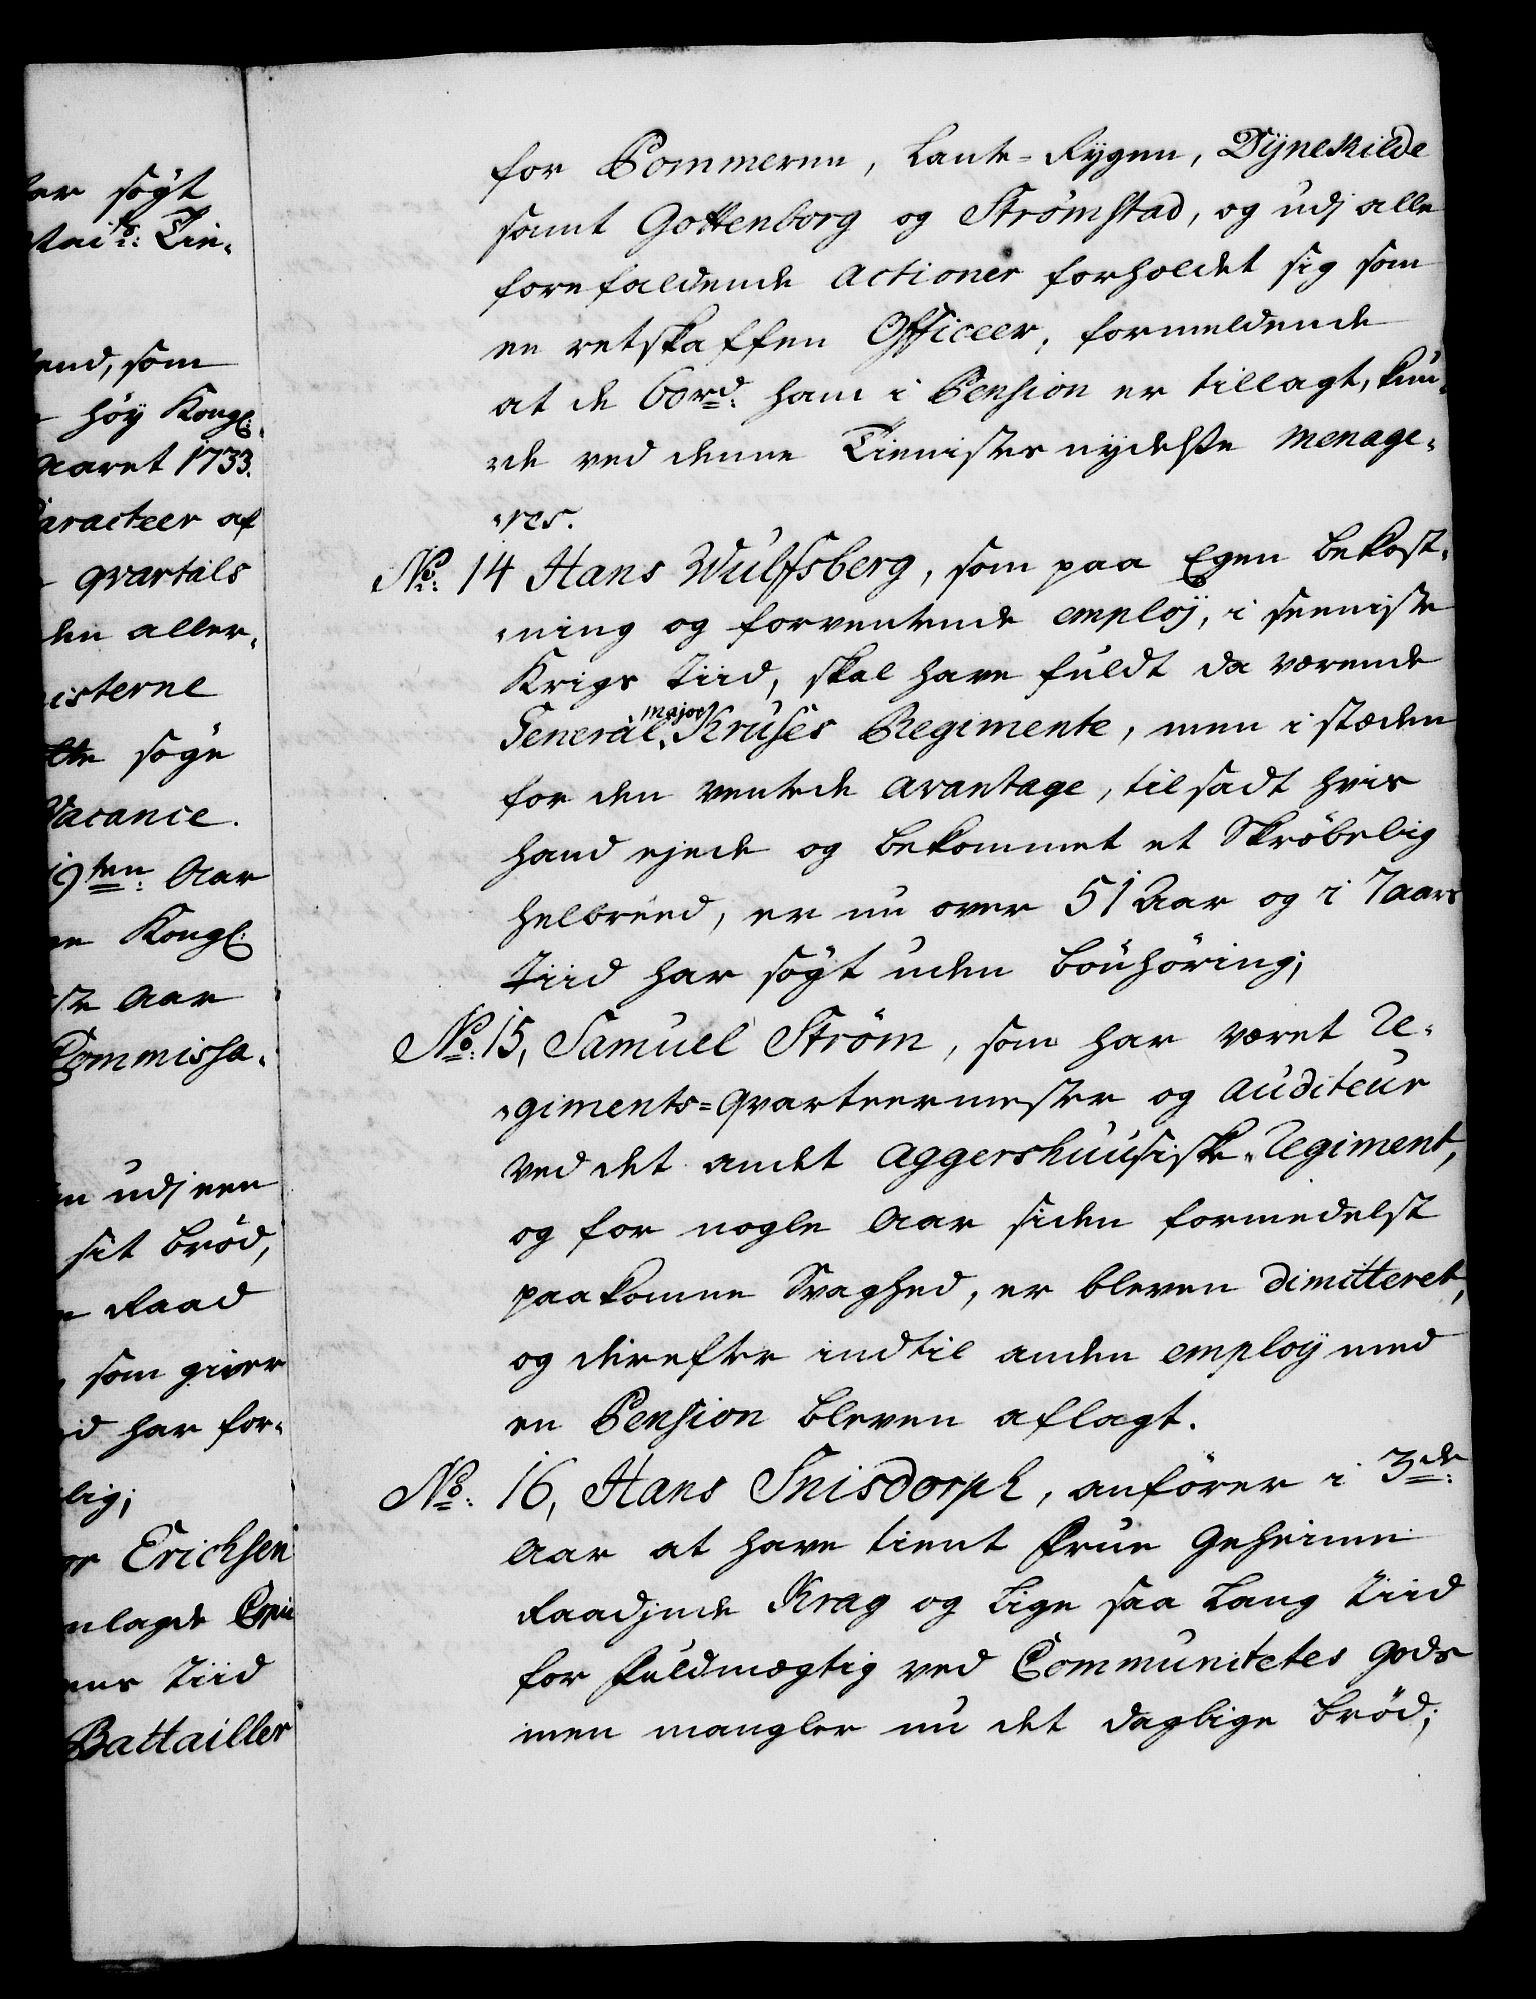 ar søgt
Cie-
end, som
høy Kongl:
Aaret 1733.
aracteer af
qvartals
den aller-
isterne
søge
Vacance.
19ten: Aar
en Kongl:
Aar
Commissa-
udj een
sit brød,
Raad
som giver
har for-
lig;
Erichsen
nlagde
Tiid
Battailler
for Pommeren, Lante-Rygen, Dynekilde
samt Gottenborg og Strømstad, og udj alle
forefaldende actioner forholdet sig som
en retskaffen Officeer, formeldende
at de 60rd: ham i Pension er tillagt, kun-
-de ved denne Tienistes nydelse menage-
-res.
No: 14 Hans Wulfsberg, som paa Egen bekost-
-ning og forventende employ, i seeniste
Krigs Tiid, skal have fuldt da værende
General-Major Kruses Regimente, men i stæden
for den ventede avantage, tilsadt hvis
hand ejede og bekommet et Skrøbelig
helbreed, er nu over 51 Aar og i 7 aars
Tiid har søgt uden bønhøring;
No: 15, Samuel Strøm, som har været Re-
-giments-qvarteermester og auditeur
ved det andet aggershuusiske-Regiment,
og for nogle Aar siden formedelst
paakomne Svaghed, er bleven dimitteret,
og derefter indtil anden employ med
en Pension bleven aflagt.
No: 16, Hans Snisdorph, anfører i 3de:
Aar at have tient Frue Geheime
Raadjnde Krag og lige saa lang Tiid
for Fuldmægtig ved Communitetes gods
men mangler nu det daglige brød;